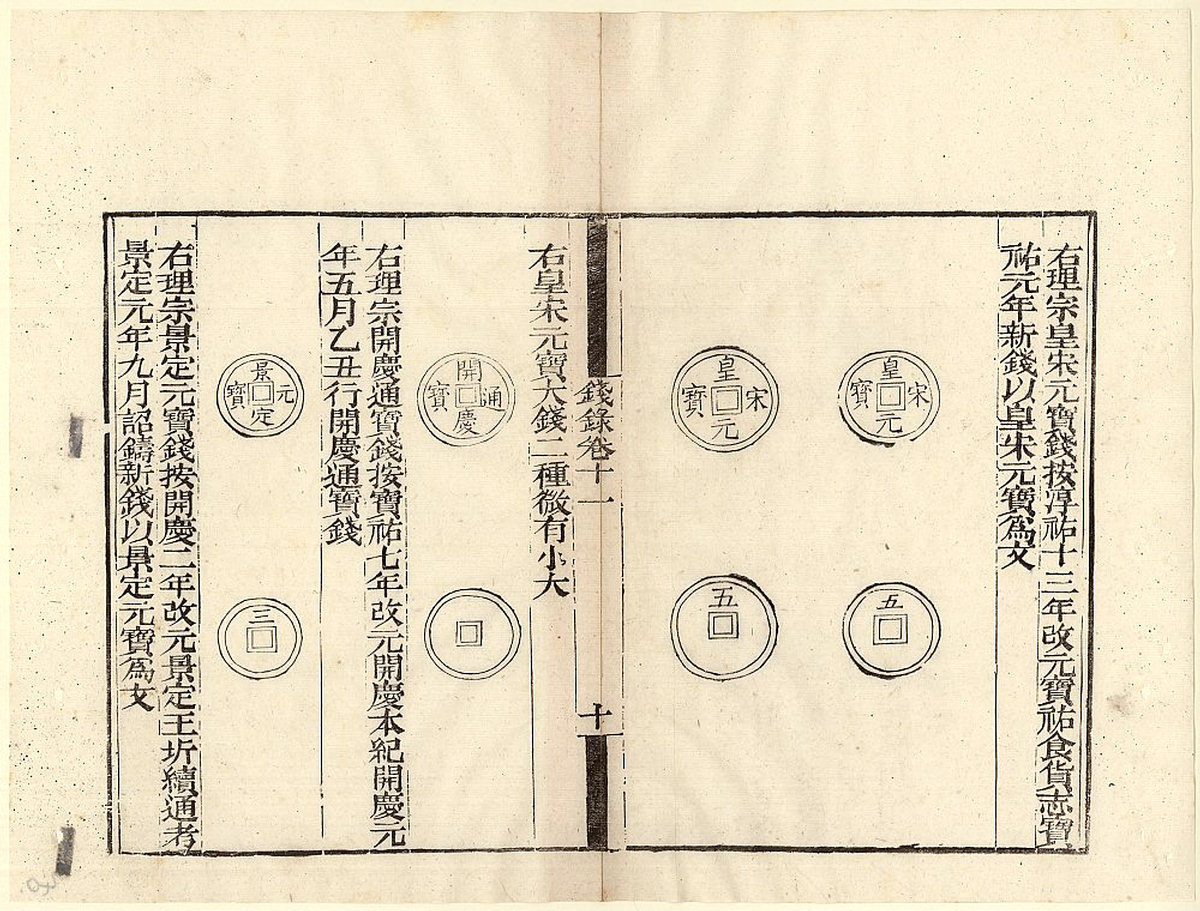 右理宗皇宋元寶錢按淳祐十三年改元寶祐食貨志寶
祐元年新錢以皇宋元寶爲文
皇宋元寶
五
皇宋元寶
五
錢錄卷十一
十
右皇宋元寶大錢二種微有小大
開通慶寶
右理宗開慶通寶錢按寶祐七年改元開慶本紀開慶元
年五月乙丑行開慶通寶錢
景元定寶
三
右理宗景定元寶錢按開慶二年改元景定王圻續通考
景定元年九月詔鑄新錢以景定元寶爲文